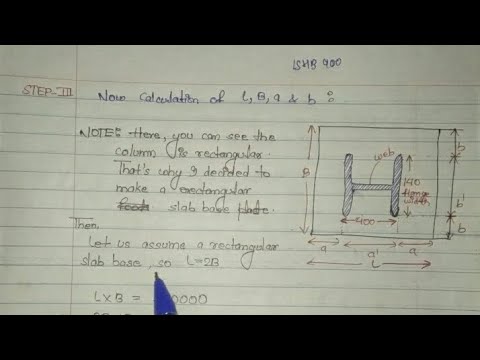 ISHB 400
STEP-III Now Calculation of L, B, a & b :
NOTE: Here, you can see the
column is rectangular.
That's why I decided to
make a rectangular
slab base plate.
Then,
Let us assume a rectangular
slab base, so L=2B
L×B = 0000
web
B
140
flange
width
400
b
b'
b
a
a'
a
L